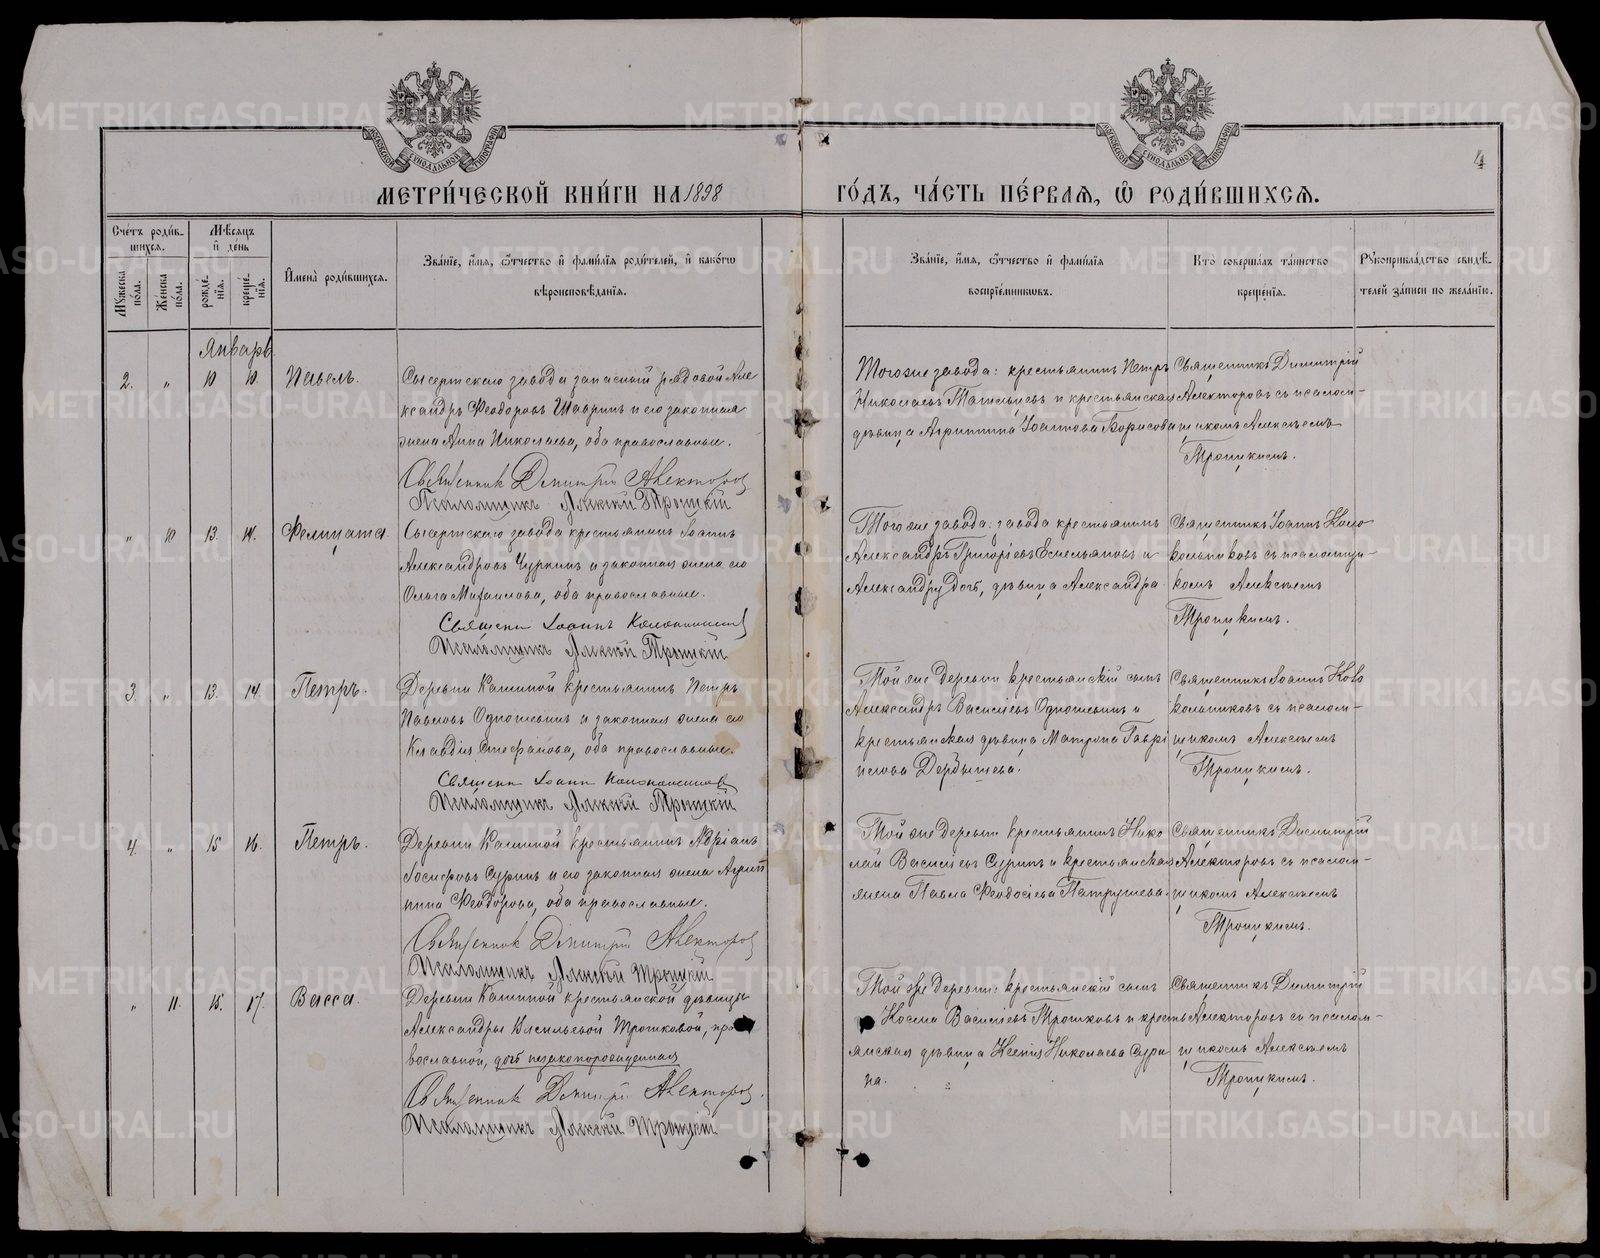 МОСКОВСКОЙ СѴНОДАЛЬНОЙ ТИПОГРАФІИ
МОСКОВСКОЙ СѴНОДАЛЬНОЙ ТИПОГРАФІИ
4
МЕТРИ́ЧЕСКОЙ КНИ́ГИ НА 1898 ГО́ДЪ, ЧА́СТЬ ПЕ́РВАѦ, Ѡ҆ РОДИ́ВШИХСѦ.
Сче́тъ роди́в-
шихсѧ.
Мꙋ́жеска по́ла.
Же́нска по́ла.
Мѣ́сѧцъ
и҆ де́нь
рожде́-
нїѧ.
креще́-
нїѧ.
И҆мена̀ роди́вшихсѧ.
Зва́нїе, и҆́мѧ, ѻ҆́тчество и҆ фами́лїѧ роди́телей, и҆ како́гѡ
вѣроисповѣ́данїѧ.
Зва́нїе, и҆́мѧ, ѻ҆́тчество и҆ фами́лїѧ
воспрїе́мникѡвъ.
Кто̀ соверша́лъ та́инство
креще́нїѧ.
Рꙋкоприкла́дство свидѣ́-
телей за́писи по жела́нїю.
Январь
2. " 10 10. Павелъ.
Сысертскаго завода запасный рядовой Але
ксандръ Феодоровъ Шавринъ и его законная
жена Анна Николаева, оба православные.
Священник Димитрій Алекторов
Псаломщикъ Алексій Троицкій
Тогоже завода: крестьянинъ Петръ
Николаевъ и крестьянская
дѣвица Агриппина Іоаннова Борисова
Священникъ Димитрій
Алекторовъ съ псалом-
щикомъ Алексѣемъ
Троицкимъ.
" 10 13. 14. Фелицата.
Сысертскаго завода крестьянинъ Іоаннъ
Александровъ Чуркинъ и законная жена его
Ольга Михаилова, оба православные.
Священн Іоаннъ Колокольников
Псаломщикъ Алексій Троицкій
Того же завода: завода крестьянинъ
Александръ Григоріевъ Емельяновъ и
дочь, дѣвица Александра.
Священникъ Іоаннъ Коло
кольниковъ съ псаломщи-
комъ Алексѣемъ
Троицкимъ.
3 " 13. 14. Петръ.
Деревни Кашиной крестьянинъ Петръ
Павловъ Одношевинъ и законная жена его
Клавдія Стефанова, оба православные.
Священн Іоанн Колокольников
Псаломщикъ Алексій Троицкій
Той же деревни крестьянскій сынъ
Александръ Василіевъ Одношевинъ и
крестьянская дѣвица Матрона Гаврі
илова Дербышева.
Священникъ Іоаннъ Коло
кольниковъ съ псалом-
щикомъ Алексѣемъ
Троицкимъ.
4. " 15 16. Петръ.
Деревни Кашиной крестьянинъ Адріанъ
Іосифовъ Суринъ и его законная жена Агрип
пина Феодорова, оба православные.
Священник Димитрій Алекторов
Псаломщикъ Алексій Троицкій
Той же деревни крестьянинъ Нико
лай Василіевъ Суринъ и крестьянская
жена Павла Феодосіева Патрушева.
Священникъ Димитрій
Алекторовъ съ псалом-
щикомъ Алексѣемъ
Троицкимъ.
" 11. 15. 17. Васса.
Деревни Кашиной крестьянской дѣвицы
Александры Васильевой Трошковой, пра
вославной, дочь незаконорожденная
Священник Димитрій Алекторов.
Псаломщикъ Алексій Троицкій
Той же деревни: крестьянскій сынъ
Косма Василіевъ Трошковъ и кресть
янская дѣвица Ксенія Николаева Сури
на.
Священникъ Димитрій
Алекторовъ со псалом-
щикомъ Алексѣемъ
Троицкимъ.
METRIKI.GASO-URAL.RU